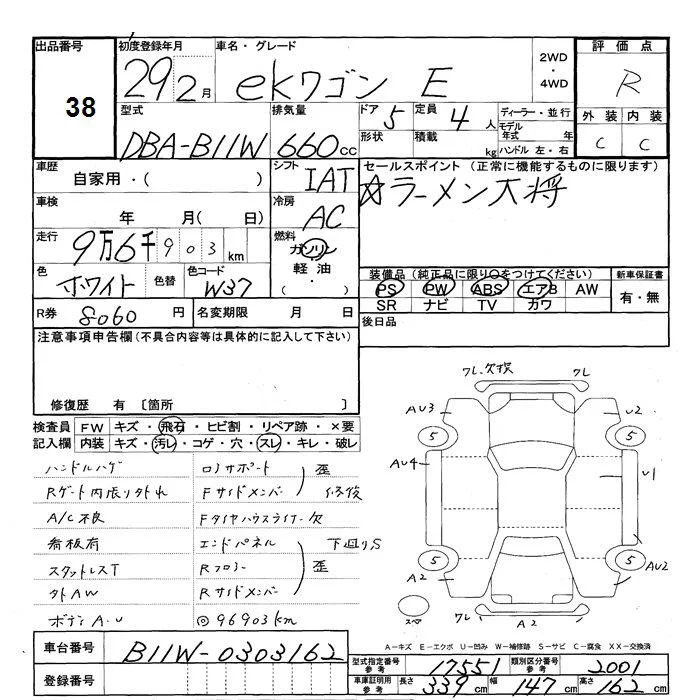 出品番号 初度登録年月 車名・グレード 評価点
38
29 2月 ekワゴン E
2WD・4WD
R
型式 排気量 ドア 5 定員 4人 ディーラー・並行
外装 内装
DBA-B11W 660cc 形状 積載 kg モデル年式 年
ハンドル 左・右
C C
車歴 シフト セールスポイント (正常に機能するものに限ります)
自家用・( ) IAT
☆ラーメン大将
車検 冷房
年 月( 日) AC
走行 燃料
9万6千903km ガソリン・軽油・( )
色 色替 色コード
ホワイト W37
装備品(純正品に限り○をつけてください) 新車保証書
PS PW ABS エアB AW 有・無
SR ナビ TV カワ
R券 8060円 名変期限 月 日
後日品
注意事項申告欄(不具合内容等は具体的に記入して下さい)
修復歴 有 [箇所 ]
検査員 FW キズ・飛石・ヒビ割・リペア跡・×要
記入欄 内装 キズ・汚レ・コゲ・穴・スレ・キレ・破レ
ハンドルハゲ コアサポート 歪
Rゲート内張り外れ Fサイドメンバー 修復
A/C不良 Fタイヤハウスライナー欠
看板有 エンドパネル 下廻りS
スタットレスT Rフロアー 歪
外AW Rサイドメンバー
ボディA・U ◎96903km
クレ、欠損 クレ
AU3 U2
5 5
AU4 U1
5 5
A2 AU2
スペア クレ A2
A−キズ E−エクボ U−凹み W−補修跡 S−サビ C−腐食 XX−交換済
車台番号 B11W-0303162
登録番号
型式指定番号 参考 17551 類別区分番号 参考 2001
車庫証明用 参考 長さ 339cm 幅 147cm 高さ 162cm